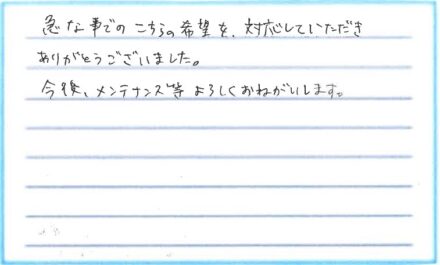 急な事でのこちらの希望を、対応していただき
ありがとうございました。
今後、メンテナンス等よろしくおねがいします。